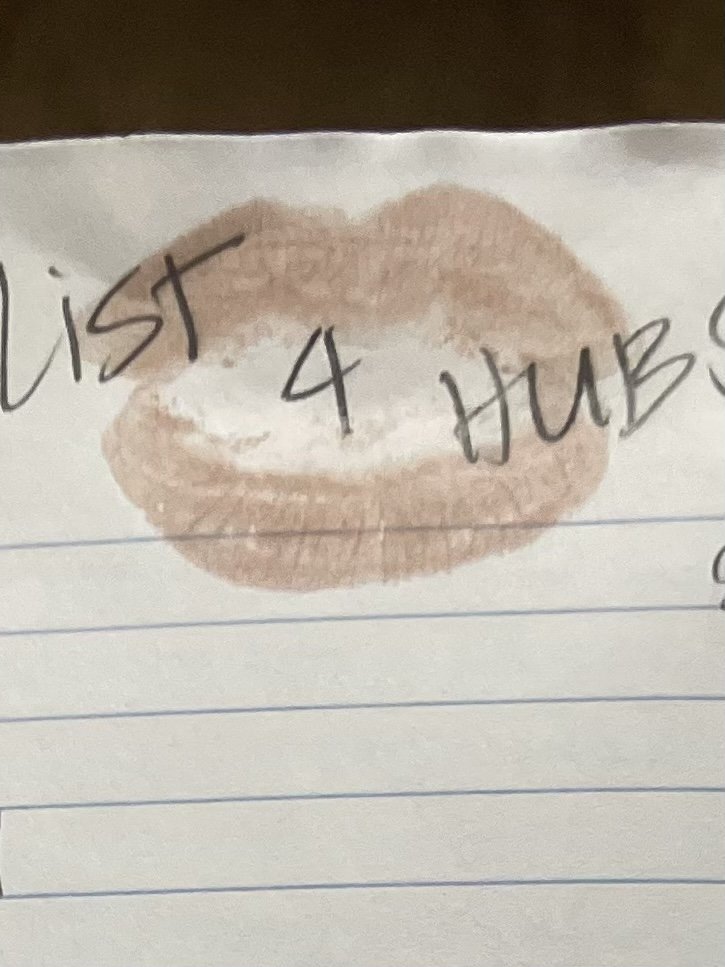 LiST 4 HUBS